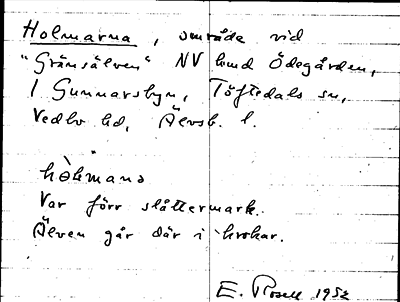 Holmarna, område vid
"Gränsälven" NV hmd Ödegården,
I Gunnarsbyn, Töftedals sn,
Vedbo hd, Älvsb. l.
hòlmana
Var förr slåttermark.
Älven går där i krokar.
E. Rosell 1952